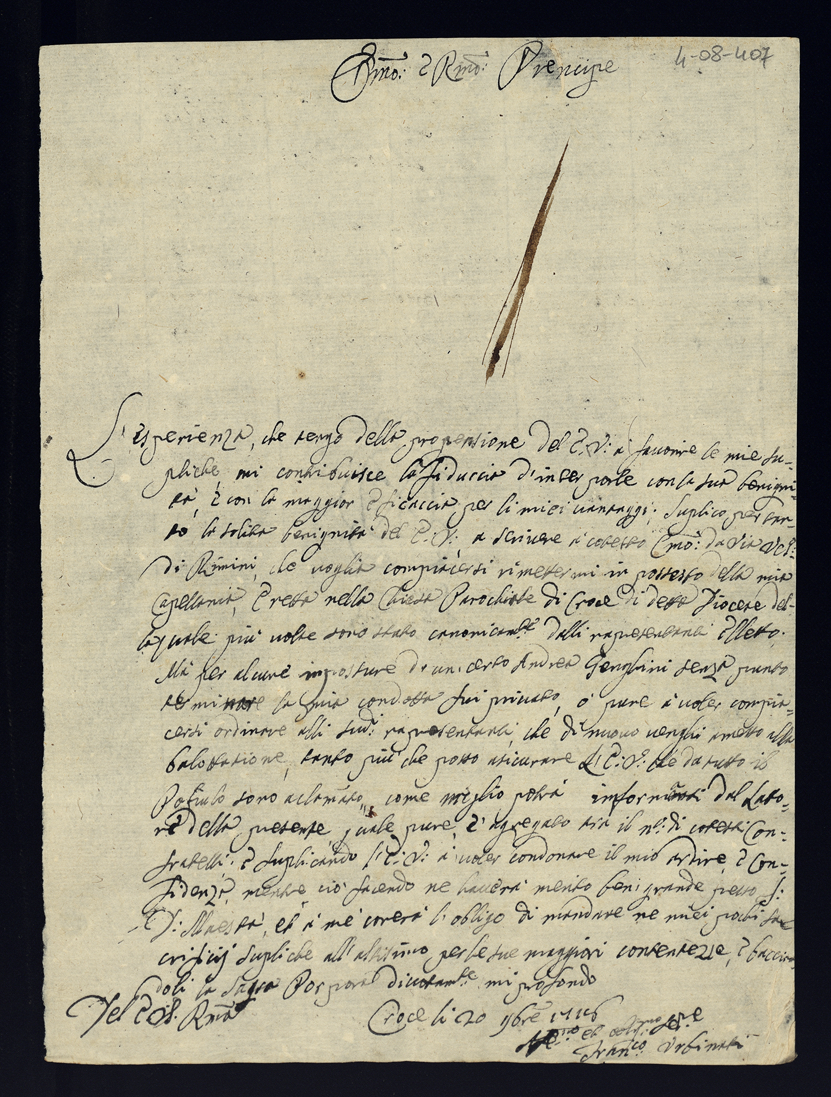 4-08-407
Emo: e Rmo: Prencipe
L'esperienza, che tengo della propensione del E.V: a favorire le mie su-
pliche, mi contribuisce la fiducia d'interporle con la sua benigni-
tà, e con la maggior eficaccia per li miei vantaggi; Suplico per tan-
to la solita benignità del E.V: a scrivere a cotesto Emo: da Via Vesc:
di Rimini, che voglia compiacersi rimetermi in possesso della mia
Capellania, eretta nella Chiesa Parochiale di Croce di detta Diocese del-
la quale più volte sono stato canonicamte dalli rapresentanti eletto.
Mà per alcune imposture d'un certo Andrea Genghini senza punto
la mia condotta fui privato, ò pure à voler compia-
cersi ordinare alli sudi: rapresentanti, che di nuovo venghi amesso alla
balottatione, tanto più che posso asicurare L'E.V: che da tutto il
Popolo sono aclamato, come meglio potrà informarsi dal Lato-
re della presente, quale pure è agregato tra il no: di cotesti Con-
fratelli. e suplicando l'E.V: à voler condonare il mio ardire, e Con-
fidenza, mentre ciò facendo ne haverà merito ben grande presso S:
D: Maestà, et à me corerà l'obligo di mandare ne miei pochi sa-
crificij supliche all'altissimo per le sue maggiori contentezze, e baccian-
doli la Sagra Porpora divotamte mi profondo
Del E.V: Rma
Croce li 20 9bre 1716
et
Franco Urbinati